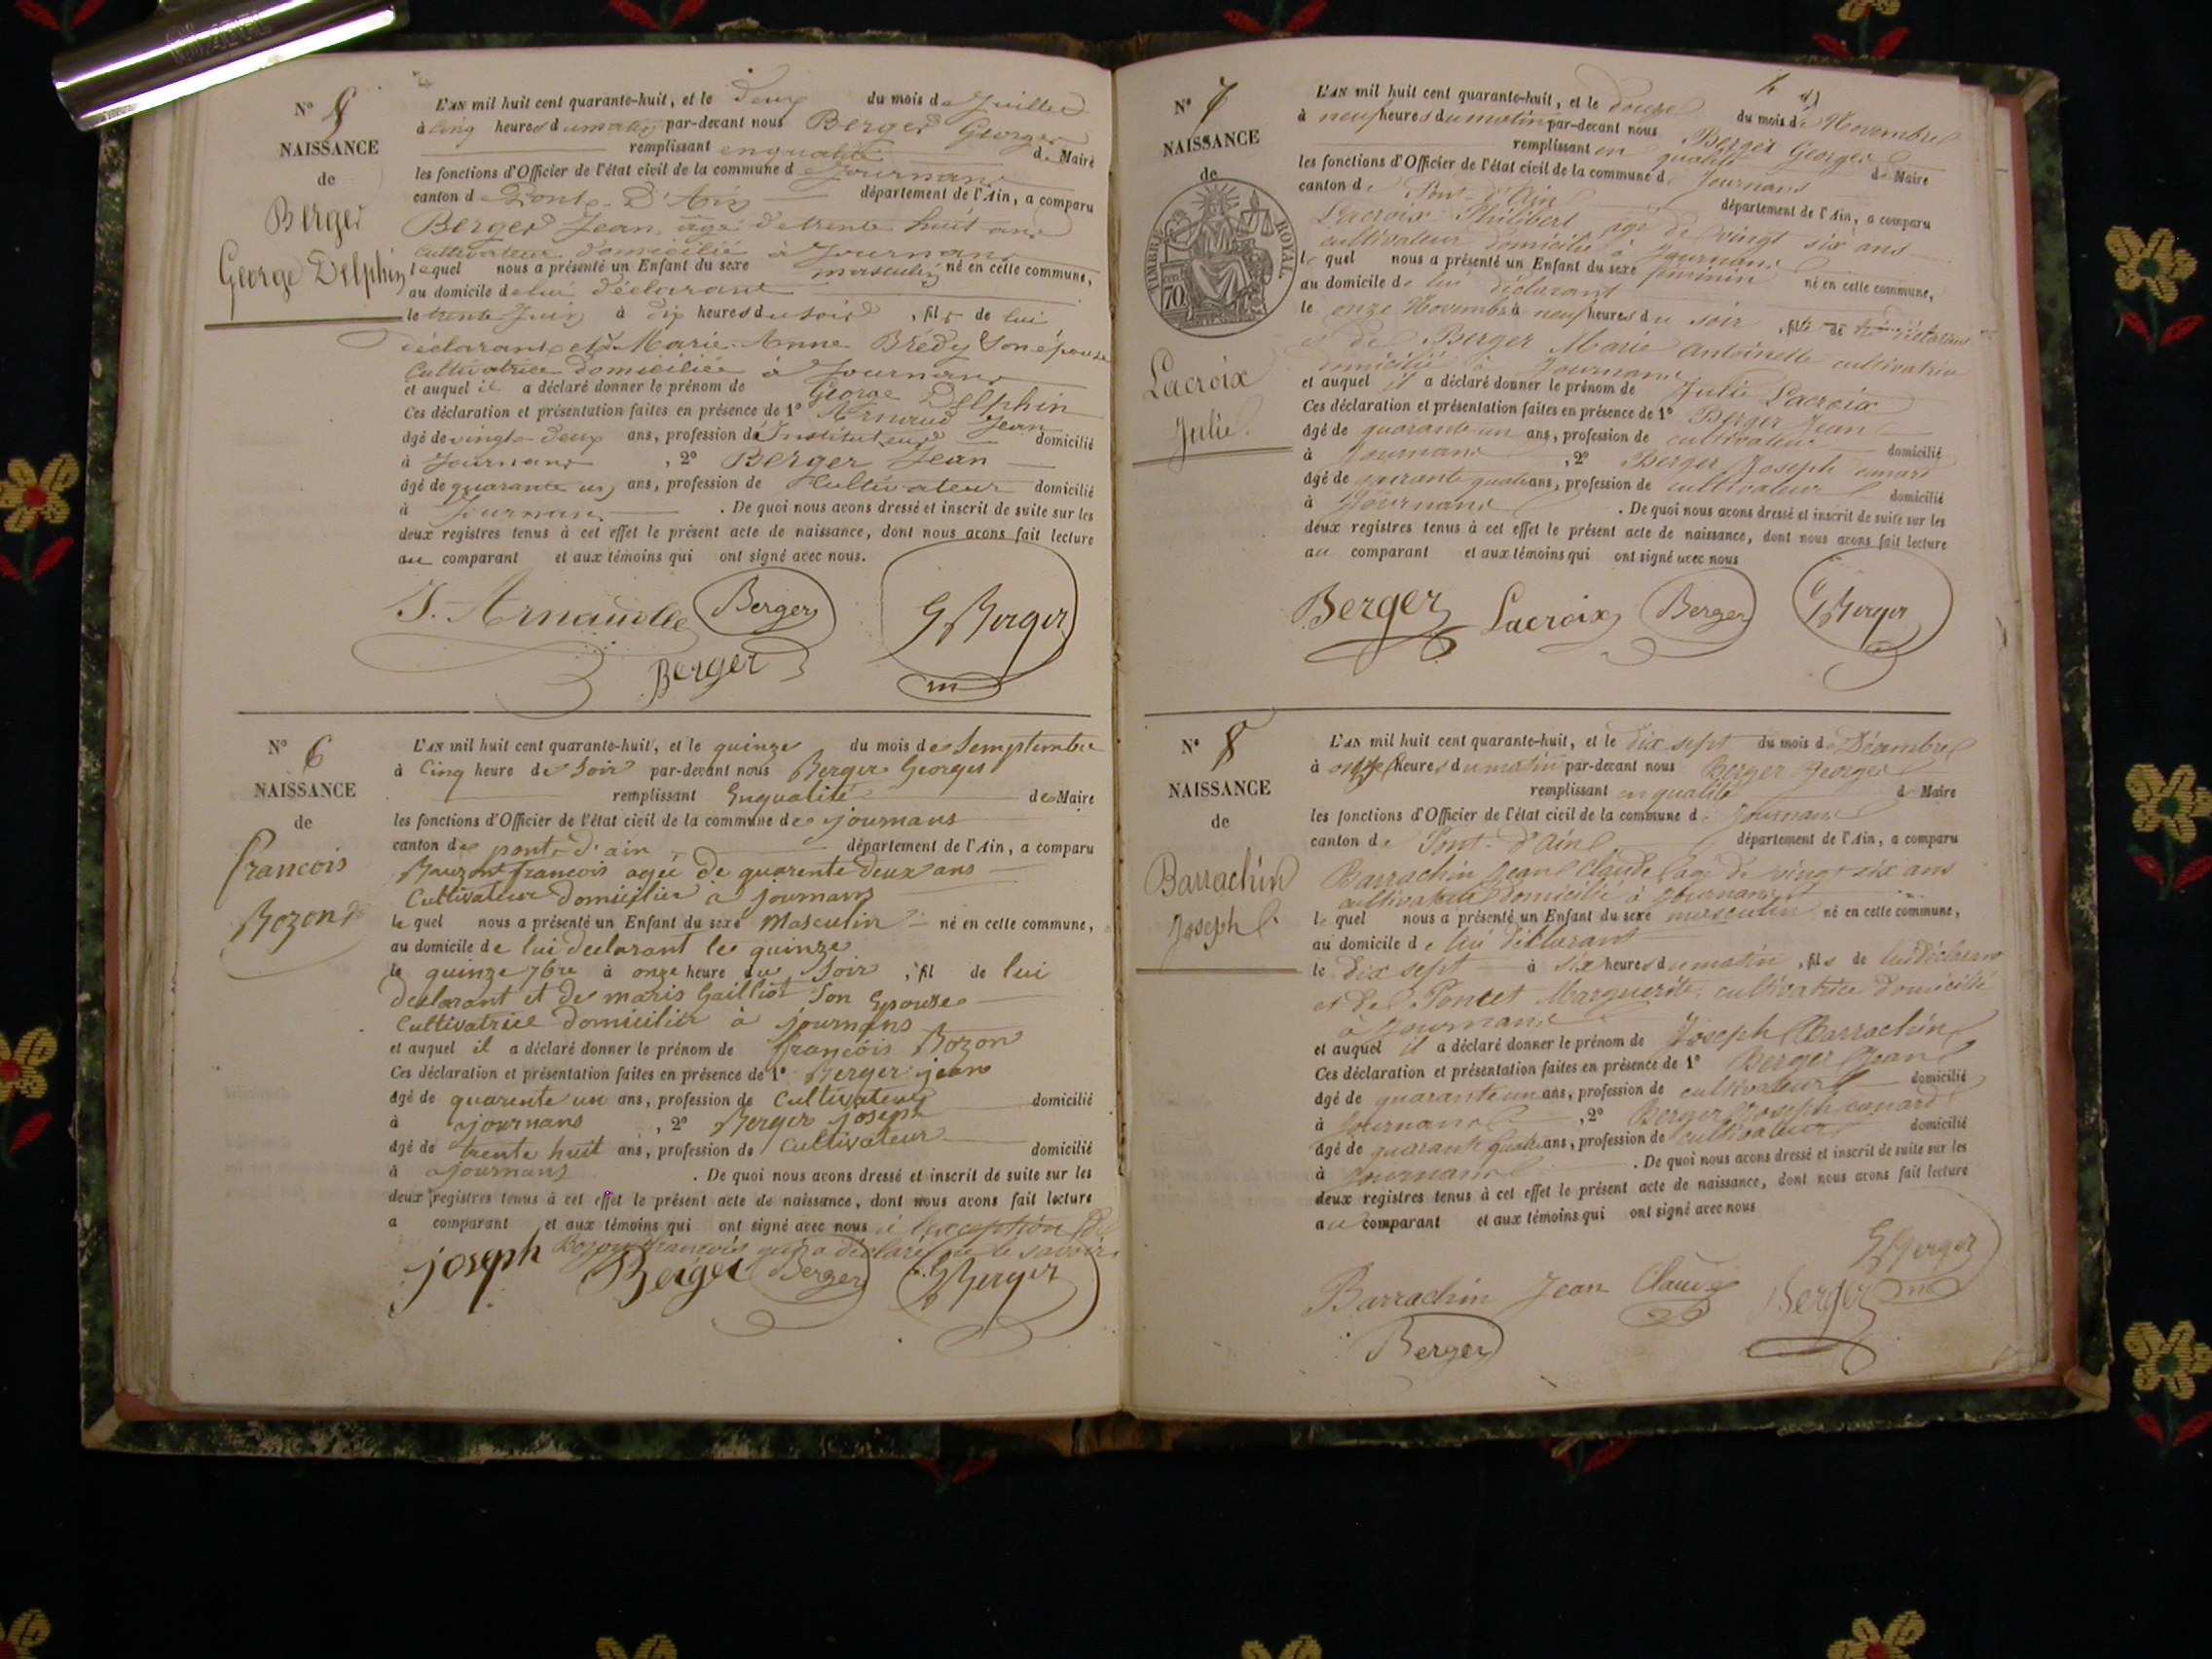 N° 5
NAISSANCE
de
Berger
George Delphin
L'AN mil huit cent quarante-huit, et le deux du mois de Juillet
à cinq heures du matin par-devant nous Berger Georges
remplissant en qualité de Maire
les fonctions d'Officier de l'état civil de la commune d Journans
canton de Pont-D'Ain département de l'Ain, a comparu
Berger Jean âgé de trente huit ans
Cultivateur domicilié à Journans
lequel nous a présenté un Enfant du sexe masculin né en cette commune,
au domicile de lui déclarant
le trente Juin à dix heures du soir, fils de lui
déclarant et de Marie Anne Brédy son épouse
Cultivatrice domiciliée à Journans
et auquel il a déclaré donner le prénom de George Delphin
Ces déclaration et présentation faites en présence de 1° Arnaud Jean
âgé de vingt-deux ans, profession d'Instituteur domicilié
à Journans, 2° Berger Jean
âgé de quarante un ans, profession de Cultivateur domicilié
à Journans. De quoi nous avons dressé et inscrit de suite sur les
deux registres tenus à cet effet le présent acte de naissance, dont nous avons fait lecture
au comparant et aux témoins qui ont signé avec nous.
J. Arnaud Berger G Berger
Berger
N° 6
NAISSANCE
de
francois
Bozon
L'AN mil huit cent quarante-huit, et le quinze du mois de Semptembre
à Cinq heure de Soir par-devant nous Berger Georges
remplissant Enqualité de Maire
les fonctions d'Officier de l'état civil de la commune de journans
canton de pont-d'ain département de l'Ain, a comparu
francois agée de quarente deux ans
Cultivateur Domicilier a journans
le quel nous a présenté un Enfant du sexe Masculin né en cette commune,
au domicile de lui declarant le quinze
le quinze 7bre à onze heure du Soir, fil de lui
declarant et de maris Gailliot Son Epouse
Cultivatrice Domicilier à journans
et auquel il a déclaré donner le prénom de françois Bozon
Ces déclaration et présentation faites en présence de 1° Berger jean
âgé de quarente un ans, profession de Cultivateur domicilié
à journans, 2° Berger joseph
âgé de trente huit ans, profession de Cultivateur domicilié
à journans. De quoi nous avons dressé et inscrit de suite sur les
deux registres tenus à cet effet le présent acte de naissance, dont nous avons fait lecture
a comparant et aux témoins qui ont signé avec nous à l'exception de
Bozon francois qui a déclaré ne le savoir
joseph Berger Berger G Berger
N° 7
NAISSANCE
de
TIMBRE ROYAL
70
Lacroix
Julie
L'AN mil huit cent quarante-huit, et le douze du mois de Novembre
à neuf heures du matin par-devant nous Berger Georges
remplissant en qualité de Maire
les fonctions d'Officier de l'état civil de la commune d Journans
canton de Pont-d'Ain département de l'Ain, a comparu
Lacroix Philibert agé de vingt six ans
cultivateur domicilié à Journans
le quel nous a présenté un Enfant du sexe féminin né en cette commune,
au domicile de lui déclarant
le onze Novembre à neuf heures du soir, fille de lui déclarant
et de Berger Marie Antoinette cultivatrice
domicilié à Journans
et auquel il a déclaré donner le prénom de Julie Lacroix
Ces déclaration et présentation faites en présence de 1° Berger Jean
âgé de quarante un ans, profession de cultivateur domicilié
à Journans, 2° Berger Joseph
âgé de quarante quatre ans, profession de cultivateur domicilié
à Journans. De quoi nous avons dressé et inscrit de suite sur les
deux registres tenus à cet effet le présent acte de naissance, dont nous avons fait lecture
au comparant et aux témoins qui ont signé avec nous
Berger Lacroix Berger G Berger
N° 8
NAISSANCE
de
Barrachin
Joseph
L'AN mil huit cent quarante-huit, et le dix sept du mois de Décembre
à onze heures du matin par-devant nous Berger Georges
remplissant en qualité d Maire
les fonctions d'Officier de l'état civil de la commune d Journans
canton de Pont-d'Ain département de l'Ain, a comparu
Barrachin Jean Claude agé de vingt six ans
cultivateur domicilié à Journans
le quel nous a présenté un Enfant du sexe masculin né en cette commune,
au domicile de lui déclarant
le dix sept à six heures du matin, fils de lui déclarant
et de Poncet Marguerite, cultivatrice domicilié
à Journans
et auquel il a déclaré donner le prénom de Joseph Barrachin
Ces déclaration et présentation faites en présence de 1° Berger Jean
âgé de quarante un ans, profession de cultivateur domicilié
à Journans, 2° Berger Joseph
âgé de quarante quatre ans, profession de cultivateur domicilié
à Journans. De quoi nous avons dressé et inscrit de suite sur les
deux registres tenus à cet effet le présent acte de naissance, dont nous avons fait lecture
au comparant et aux témoins qui ont signé avec nous
G Berger
Barrachin Jean Claude Berger
Berger